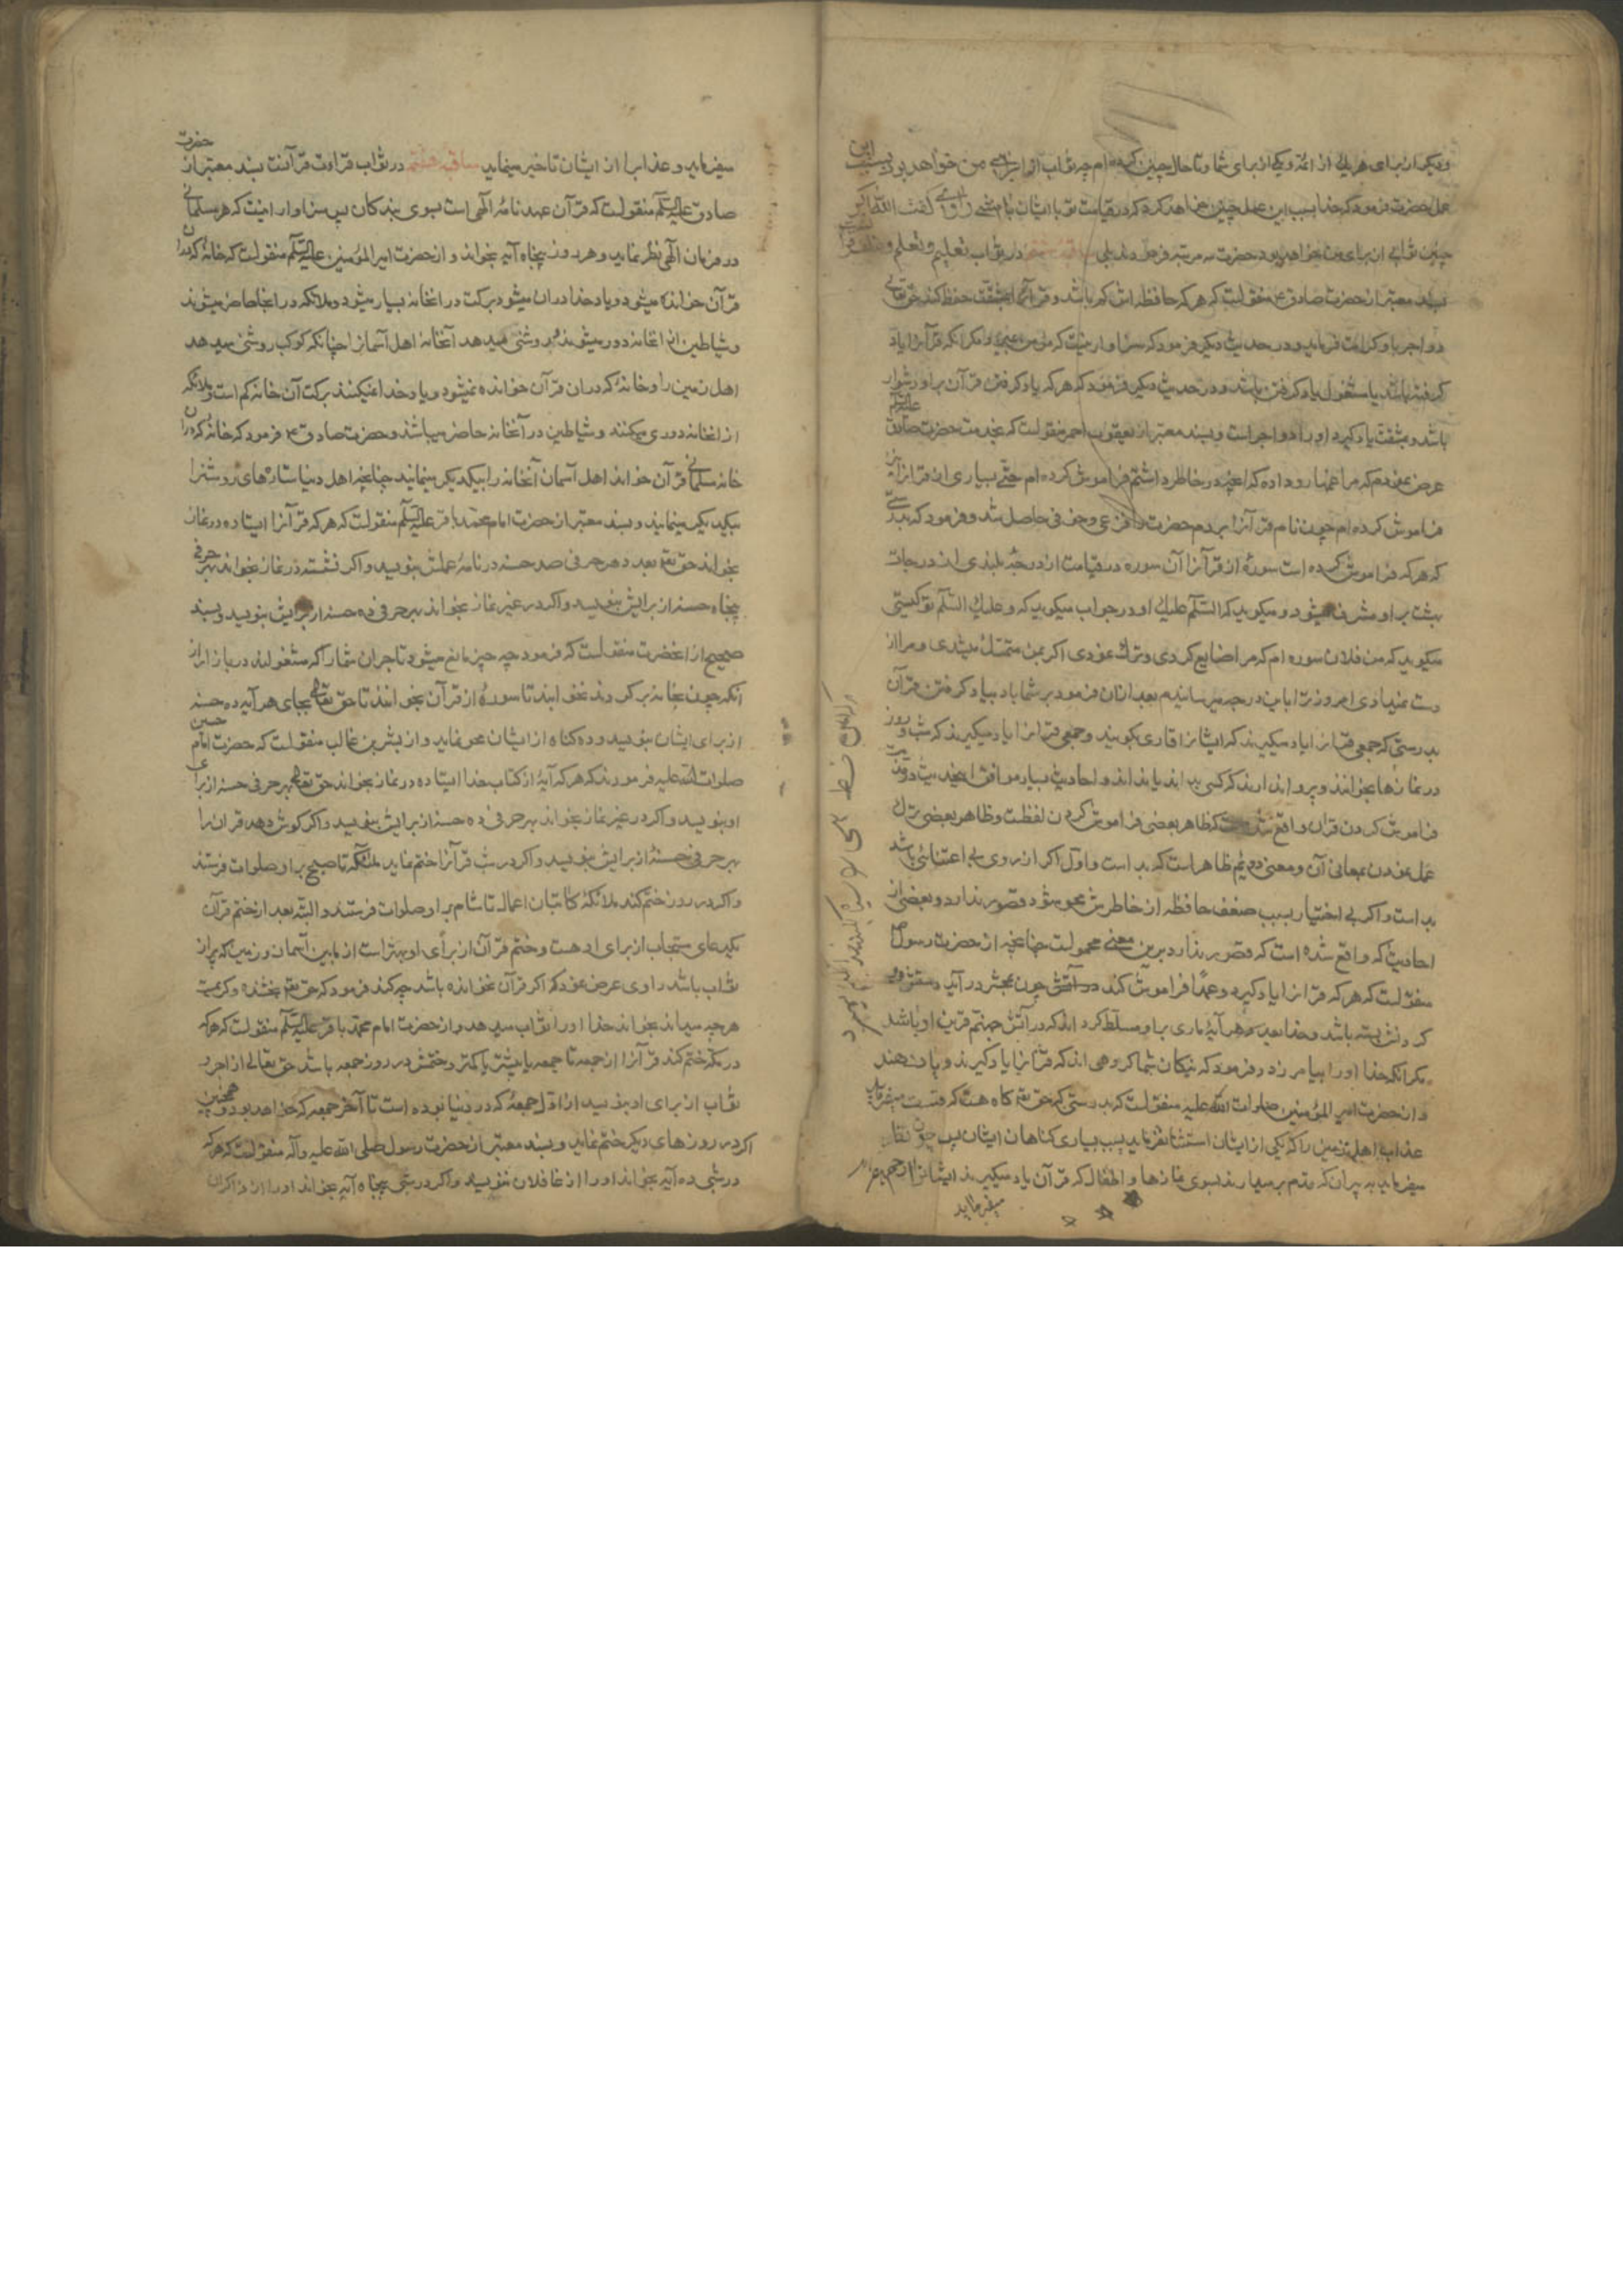 و یکی از برای هر یکی از ائمه و یکی از برای شما و تا حال چنین کرده‌ام چه ثواب از برای من خواهد بود بسبب این
عمل حضرت فرمود که خدا بسبب این عمل چنین خواهد کرد که در قیامت تو با ایشان باشی راوی گفت الله اکبر
چنین ثوابی از برای من خواهد بود حضرت سه مرتبه فرمود که بلی ساقیه در ثواب تعلیم و تعلم و
بسند معتبر از حضرت صادق ع منقولست که هر که حافظه اش کم باشد و قرآنرا بمشقت حفظ کند حق تعالی
دو اجر باو کرامت فرماید و در حدیث دیگر فرمود که سزاوار نیست که مؤمن بمیرد مگر آنکه قرآنرا یاد
گرفته باشد یا مشغول یاد گرفتن باشد و در حدیث دیگر فرمود که هر که یاد گرفتن قرآن بر او دشوار
باشد و بمشقت یاد گیرد او را دو اجر است و بسند معتبر از یعقوب احمر منقولست که بخدمت حضرت صادق علیه السلام
عرض نمودم که مرا غمها رو داده که آنچه در خاطر داشتم فراموش کرده‌ام حتی بسیاری از قرآن را نیز
فراموش کرده‌ام چون نام قرآنرا بردم حضرت را فزعی و خوفی حاصل شد و فرمود که بدرستی
که هر که فراموش کرده است سورهٔ از قرآنرا آن سوره در قیامت از درجهٔ بلندی از درجات
بهشت بر او مشرف میشود و میگوید که السلام علیک او در جواب میگوید که و علیک السلام تو کیستی
میگوید که من فلان سوره‌ام که مرا ضایع کردی و ترک نمودی اگر بمن متمسک میشدی و مرا از
دست نمیدادی امروز ترا باین درجه میرسانیدم بعد از آن فرمود بر شما باد بیاد گرفتن قرآن
بدرستی که جمعی قرآن را یاد میگیرند که ایشانرا قاری بگویند و جمعی قرآن را یاد میگیرند که شب و روز
در نمازها بخوانند و پروا ندارند که کسی بداند یا نداند و احادیث بسیار موافق اینحدیث در مذمت
فراموش کردن قرآن واقع شده است که ظاهر بعضی فراموش کردن لفظست و ظاهر بعضی ترک
عمل نمودن بمعانی آن و معنی دویم ظاهر است که بد است و اول اگر از روی بی اعتنائی باشد
بد است و اگر بی اختیار بسبب ضعف حافظه از خاطرش محو شود قصور ندارد و بعضی از
احادیث که واقع شده است که قصور ندارد برین معنی محمولست چنانچه از حضرت رسول ص
منقولست که هر که قرآن را یاد گیرد و عمداً فراموش کند چون بمحشر در آید
که دستش بسته باشد و خدا بعدد هر آیهٔ ماری بر او مسلط گرداند که در آتش جهنم قرین او باشد
مگر آنکه خدا او را بیامرزد و فرمود که نیکان شما گروهی اند که قرآن را یاد گیرند و یاد دهند
و از حضرت امیر المؤمنین صلوات الله علیه منقولست که بدرستی که حق تع گاه هست که قصد میفرماید
عذاب اهل زمین را که یکی از ایشان استثنا نفرماید بسبب بسیاری گناهان ایشان پس چون نظر
میفرماید به پیران که قدم بر میدارند بسوی نمازها و اطفال که قرآن یاد میگیرند ایشانرا رحم
میفرماید
میفرماید و عذاب را از ایشان تاخیر مینماید ساقیه هشتم در ثواب قراءت قرآنست بسند معتبر از حضرت
صادق علیه السلم منقولست که قرآن عهد نامهٔ الهی است بسوی بندگان پس سزاوار اینست که هر مسلمانی
در فرمان الهی نظر نماید و هر روز پنجاه آیه بخواند و از حضرت امیر المؤمنین علیه السلم منقولست که خانهٔ که در آن
قرآن خوانده میشود و یاد خدا در آن میشود برکت در آنخانه بسیار میشود و ملائکه در آنجا حاضر میشوند
و شیاطین از آنخانه دور میشوند و روشنی میدهد آنخانه اهل آسمانرا چنانکه کوکب روشنی میدهد
اهل زمین را و خانهٔ که در آن قرآن خوانده نمیشود و یاد خدا نمیکنند برکت آن خانه کم است و ملائکه
از آنخانه دوری میکنند و شیاطین در آنخانه حاضر میباشد و حضرت صادق ع فرمود که خانهٔ که در آن
خانه مسلمانی قرآن خواند اهل آسمان آنخانه را بیکدیگر مینمایند چنانچه اهل دنیا ستارهای روشنرا
بیکدیگر مینمایند و بسند معتبر از حضرت امام محمد باقر علیه السلم منقولست که هر که قرآنرا ایستاده در نماز
بخواند حق تع بعدد هر حرفی صد حسنه در نامهٔ عملش بنویسد و اگر نشسته در نماز بخواند بهر حرفی
پنجاه حسنه از برایش بنویسد و اگر در غیر نماز بخواند بهر حرفی ده حسنه از برایش بنویسد و بسند
صحیح از آنحضرت منقولست که فرمود چه چیز مانع میشود تاجران شما را که مشغولند در بازار از
آنکه چون بخانه برگردند نخوابند تا سورهٔ از قرآن بخوانند تا حق تعالی بجای هر آیه ده حسنه
از برای ایشان بنویسد و ده گناه از ایشان محو نماید و از بشر بن غالب منقولست که حضرت امام حسین
صلوات الله علیه فرمودند که هر که آیهٔ از کتاب خدا ایستاده در نماز بخواند حق تعالی بهر حرفی حسنه از برای
او بنویسد و اگر در غیر نماز بخواند بهر حرفی ده حسنه از برایش بنویسد و اگر گوش دهد قرآن را
بهر حرفی حسنهٔ از برایش بنویسد و اگر در شب قرآنرا ختم نماید ملائکه تا صبح بر او صلوات فرستند
و اگر در روز ختم کند ملائکهٔ کاتبان اعمال تا شام بر او صلوات فرستند و البته بعد از ختم قرآن
یکدعای مستجاب از برای او هست و ختم قرآن از برای او بهتر است از مابین آسمان و زمین که پر از
ثواب باشد راوی عرض نمود که اگر قرآن نخوانده باشد چه کند فرمود که حق تع بخشنده و کریمست
هر چه میداند بخواند خدا او را ثواب میدهد و از حضرت امام محمد باقر علیه السلم منقولست که هر که
در مکه ختم کند قرآنرا از جمعه تا جمعه یا بیشتر یا کمتر و ختمش در روز جمعه باشد حق تعالی از اجر و
ثواب از برای او بنویسد از اول جمعهٔ که در دنیا بوده است تا آخر جمعه که خواهد بود و همچنین
اگر در روزهای دیگر ختم نماید و بسند معتبر از حضرت رسول صلی الله علیه و آله منقولست که هر که
در شبی ده آیه بخواند او را از غافلان ننویسند و اگر در شبی پنجاه آیه بخواند او را از ذاکران